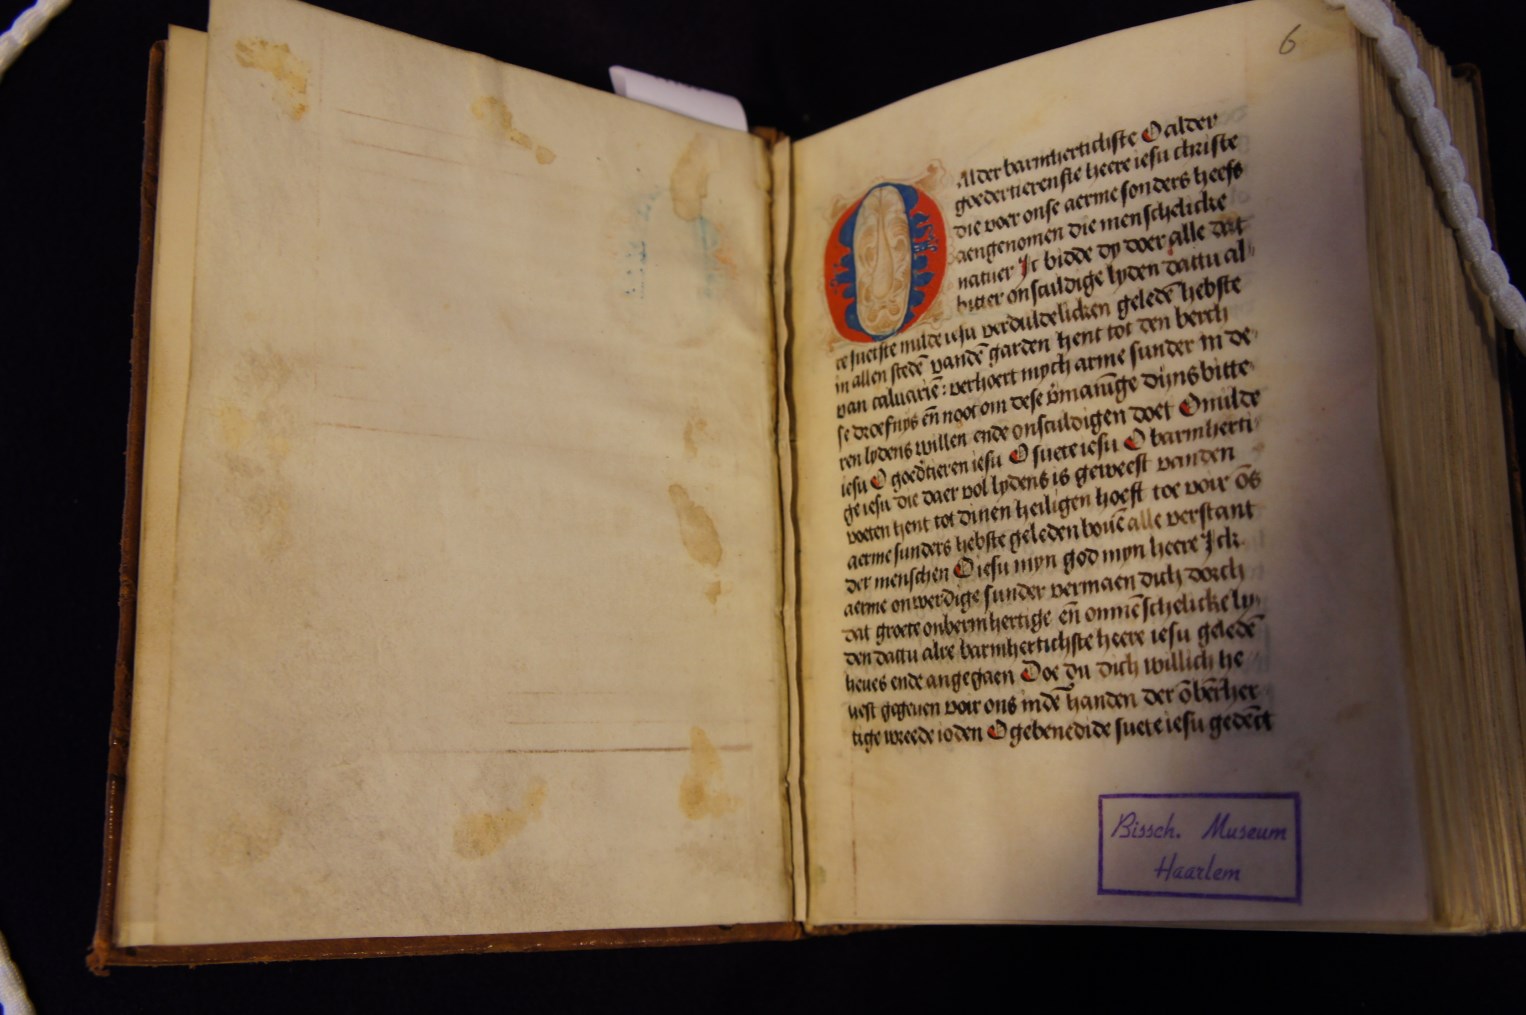 6
O Alder barmhertichste O alder
goedertierenste heere iesu christe
die voer onse aerme sonders heefs
aengenomen die menschelicke
natuer Ic bidde dy voer alle dat
bitter onsculdige lyden dattu al
re suetste milde iesu verduldelicken geledē hebste
in allen stedē vandē garden hent tot den berch
van caluariē : verhoert mych arme sunder in de
se droefnys eñ noot om dese v̄maninge dijns bitte
ren lydens willen ende onsculdigen doet O milde
iesu O goedtieren iesu O suete iesu O barmherti
ge iesu die daer vol lydens is geweest vanden
voeten hent tot dinen heiligen hoeft toe voir ōs
aerme sunders hebste geleden bouē alle verstant
der menschen O iesu myn god myn heere Ick
aerme onwerdige sunder vermaen dich dorch
dat groete onbermhertige eñ onmēschelicke ly
den dattu alre barmhertichste heere iesu geledē
heues ende angegaen Doe du dich willich he
uest gegeuen voir ons indē handen der ōbērher
tige wreede ioden O gebenedide suete iesu gedēct
Bissch. Museum
Haarlem